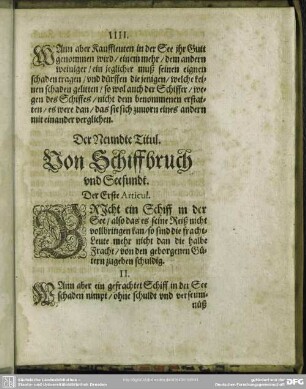 IIII.
WAnn aber Kauffleuten in der See ihr Gutt
genommen wird / einem mehr / dem andern
weiniger / ein jeglicher muß seinen eignen
schaden tragen / vnd dürffen die jenigen / welche kei-
nen schaden gelitten / so wol auch der Schiffer / we-
gen des Schiffes / nicht dem benommenen erstat-
ten / es were dan / das sie sich zuuorn eines andern
mit einander verglichen.
Der Neundte Titul.
Von Schiffbruch
vnd Seefundt.
Der Erste Articul.
BRicht ein Schiff in der
See / also das es seine Reiß nicht
vollbringen kan / so sind die fracht-
Leute mehr nicht dan die halbe
Fracht / von den geborgenen Gü-
tern zugeben schuldig.
II.
WAnn aber ein gefrachtet Schiff in der See
schaden nimpt / ohne schuldt vnd verseum-
nüß